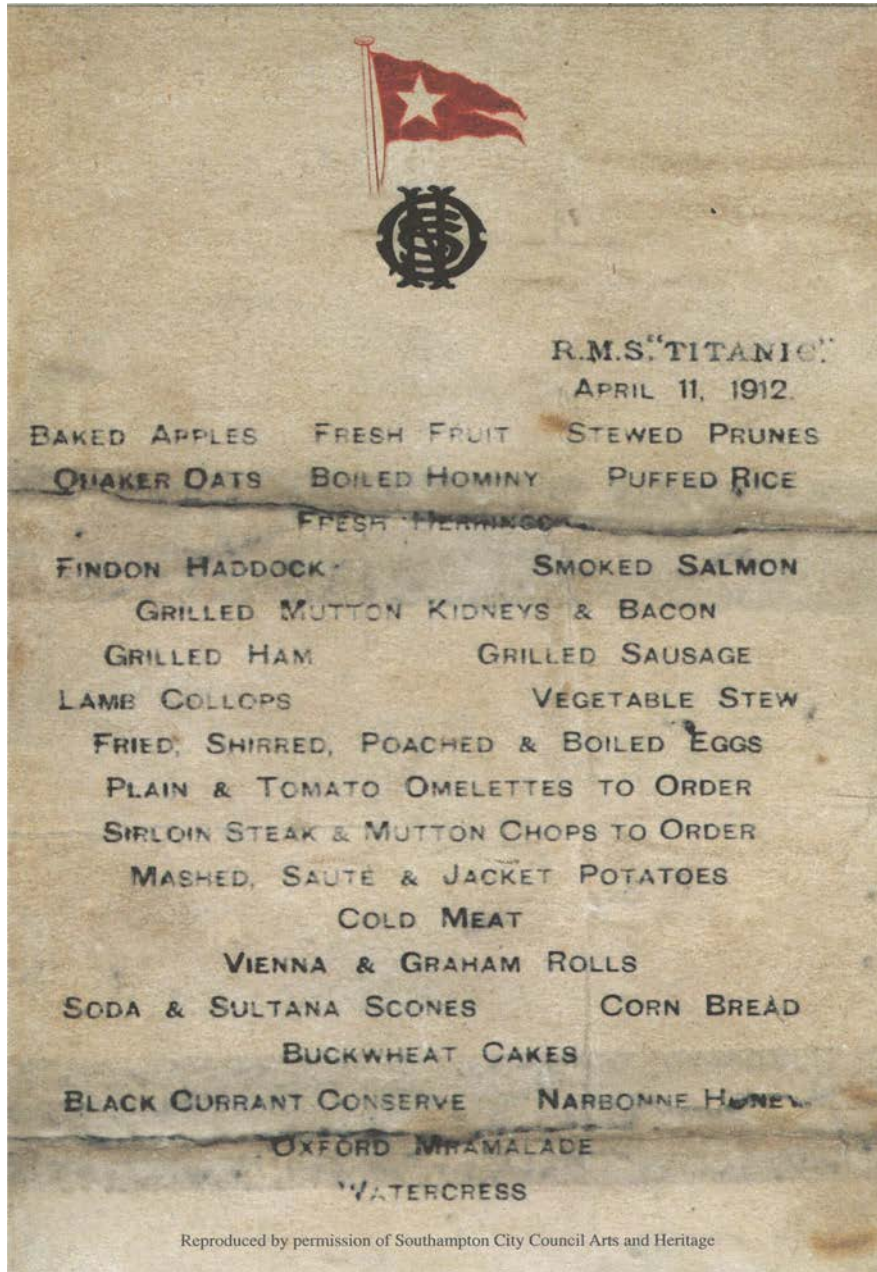 R.M.S. "TITANIC".
APRIL 11, 1912.
BAKED APPLES FRESH FRUIT STEWED PRUNES
QUAKER OATS BOILED HOMINY PUFFED RICE
FRESH HERRINGS
FINDON HADDOCK SMOKED SALMON
GRILLED MUTTON KIDNEYS & BACON
GRILLED HAM GRILLED SAUSAGE
LAMB COLLOPS VEGETABLE STEW
FRIED, SHIRRED, POACHED & BOILED EGGS
PLAIN & TOMATO OMELETTES TO ORDER
SIRLOIN STEAK & MUTTON CHOPS TO ORDER
MASHED, SAUTÉ & JACKET POTATOES
COLD MEAT
VIENNA & GRAHAM ROLLS
SODA & SULTANA SCONES CORN BREAD
BUCKWHEAT CAKES
BLACK CURRANT CONSERVE NARBONNE HONEY
OXFORD MRAMALADE
WATERCRESS
Reproduced by permission of Southampton City Council Arts and Heritage